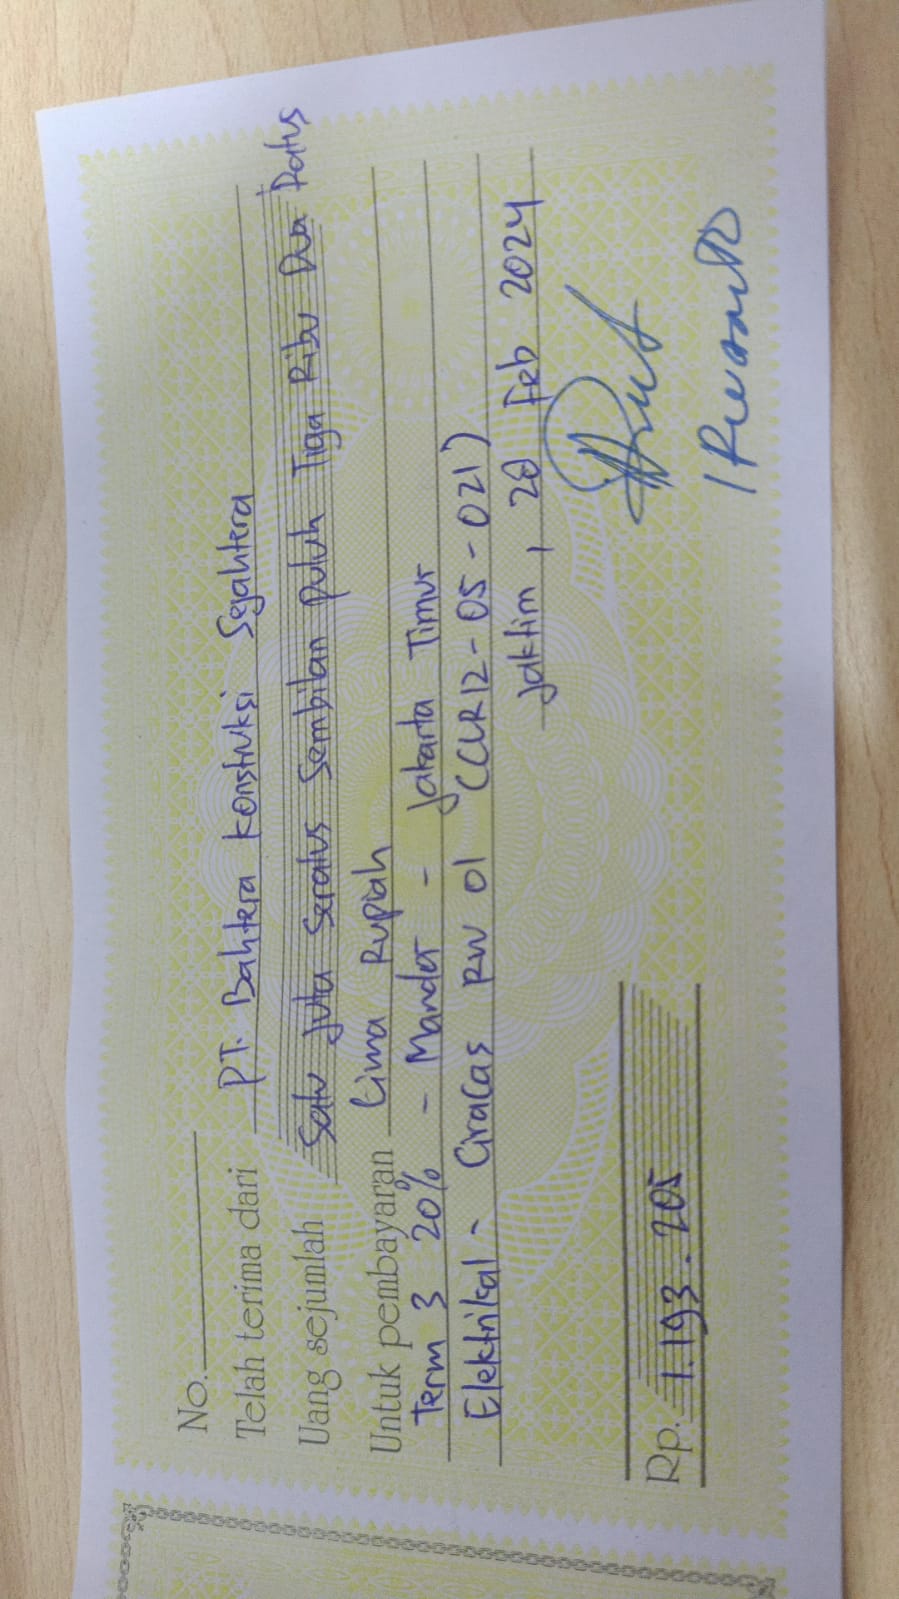 No.
Telah terima dari PT. Bahtera Konstruksi Sejahtera
Uang sejumlah Satu Juta Seratus Sembilan puluh Tiga Ribu Dua Ratus
Lima Rupiah
Untuk pembayaran
Term 3 20% - Mandor - Jakarta Timur
Elektrikal - Ciracas RW 01 (CLR12-05-021)
Jaktim, 20 Feb 2024
Rp. 1.193.205